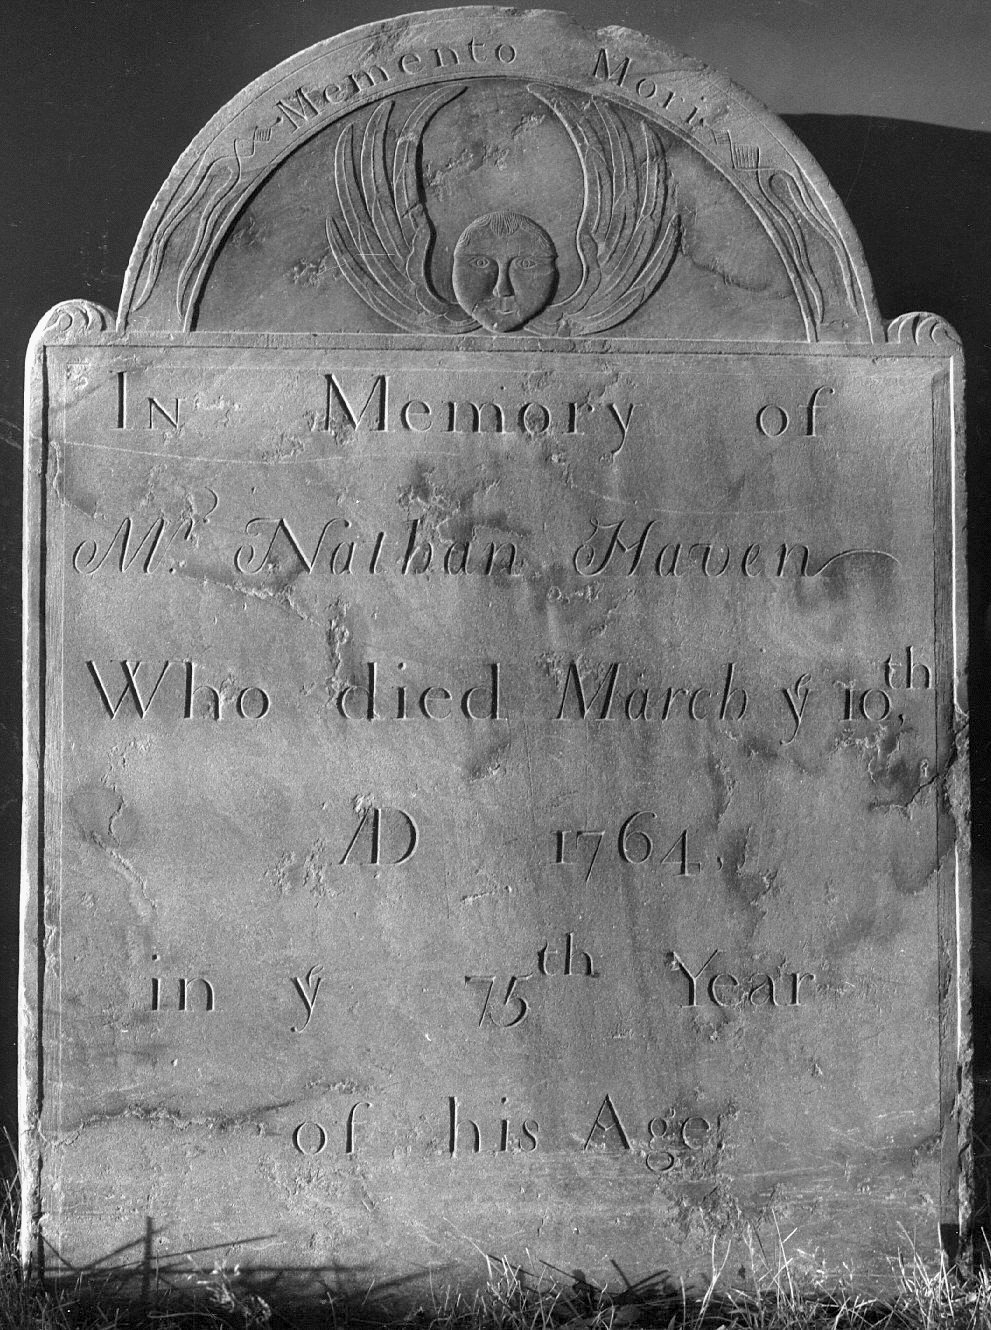 Memento Mori
In Memory of
Mr. Nathan Haven
Who died March ye 10th,
AD 1764,
in ye 75th Year
of his Age